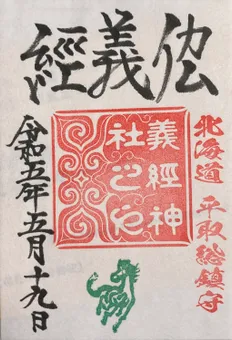 北海道 平取総鎮守
義經
義經神
社之印
令和五年五月十九日